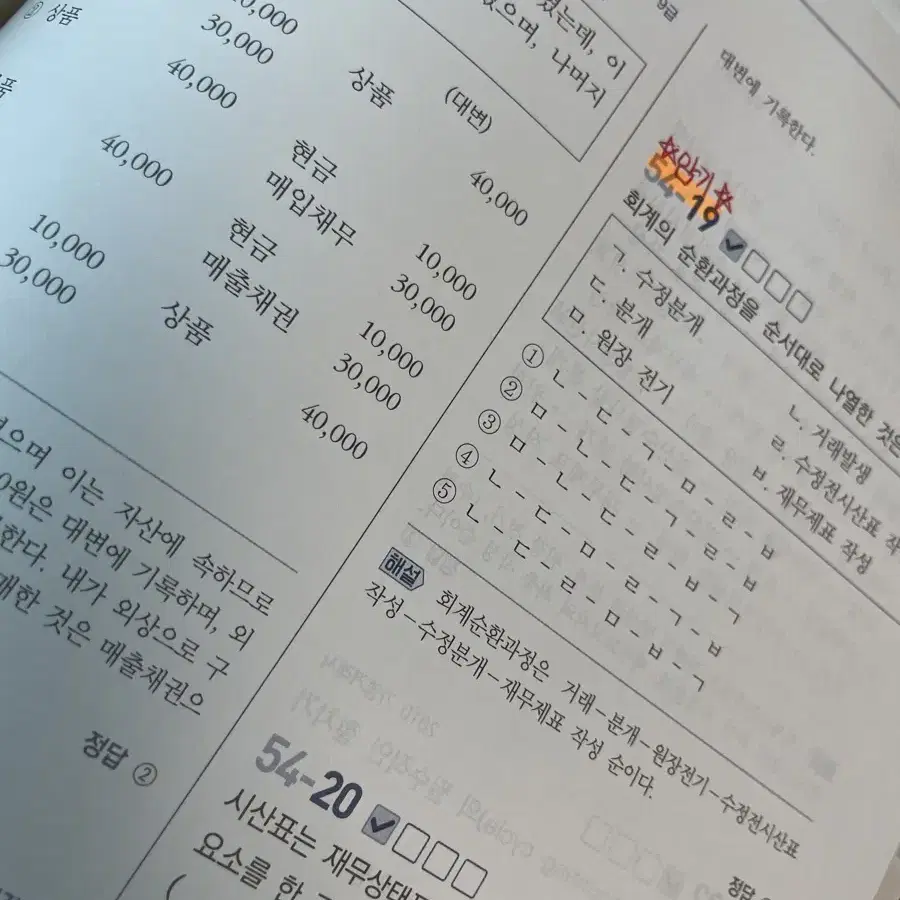 상품
30,000
40,000
상품
(대변)
40,000
40,000
현금
10,000
매입채무
30,000
10,000
현금
10,000
30,000
매출채권
30,000
상품
40,000
이는 자산에 속하므로
0원은 대변에 기록하며, 외
한다. 내가 외상으로 구
매한 것은 매출채권으
정답 ②
였는데, 이
으며, 나머지
9급
대변에 기록한다.
☆암기☆
54-19
회계의 순환과정을 순서대로 나열한 것은
ㄱ. 수정분개
ㄴ. 거래발생
ㄷ. 분개
ㄹ. 수정전시산표 작
ㅁ. 원장 전기
ㅂ. 재무제표 작성
① ㄴ - ㄷ - ㄱ - ㅁ - ㄹ - ㅂ
② ㅁ - ㄴ - ㄷ - ㄱ - ㄹ - ㅂ
③ ㅁ - ㄴ - ㄷ - ㄹ - ㅂ - ㄱ
④ ㄴ - ㄷ - ㅁ - ㄹ - ㄱ - ㅂ
⑤ ㄴ - ㄷ - ㄹ - ㅁ - ㅂ - ㄱ
해설 회계순환과정은 거래-분개-원장전기-수정전시산표
작성-수정분개-재무제표 작성 순이다.
정답
54-20
시산표는 재무상태표
요소를 한